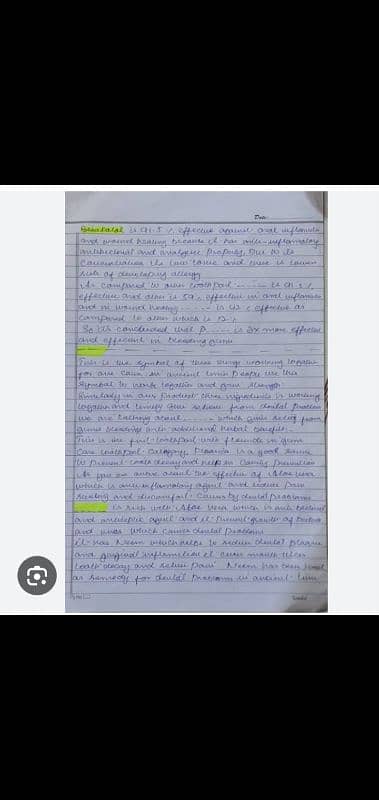 Date:
is 91.5 % effective against oral inflammation
and wound healing because it has anti-inflammatory
antibacterial and analgesic property. Due to its
concentration its low toxic and there is lower
risk of developing allergy
As compared to other toothpaste ------ is 91 %
effective and other is 59% effective in oral inflammation
and in wound healing ------ is % effective as
compared to other which is %
So it's concluded that P---- is 2x more effective
and efficient in bleeding gums
This is the symbol of three things working together
for one cause. In ancient time people use this
symbol to work together and give strength
Similarly in our product three ingredients is working
together and timely give relieve from dental problem
we are talking about ------ which give relief from
gums bleeding with additional herbal benefits.
This is the first toothpaste with fluoride in gum
care toothpaste category. Fluoride is a good source
to prevent tooth decay and help in cavity prevention
As you all aware about the effective of Aloe vera
which is anti inflammatory agent and reduce pain
swelling and discomfort caused by dental problems
is rich with Aloe vera which is anti bacterial
and antiseptic agent and it prevent growth of bacteria
and virus which causes dental problems
It has Neem which helps to reduce dental plaque
and gingival inflammation it cures mouth ulcer
tooth decay and relieve pain Neem has been used
as remedy for dental problems in ancient time